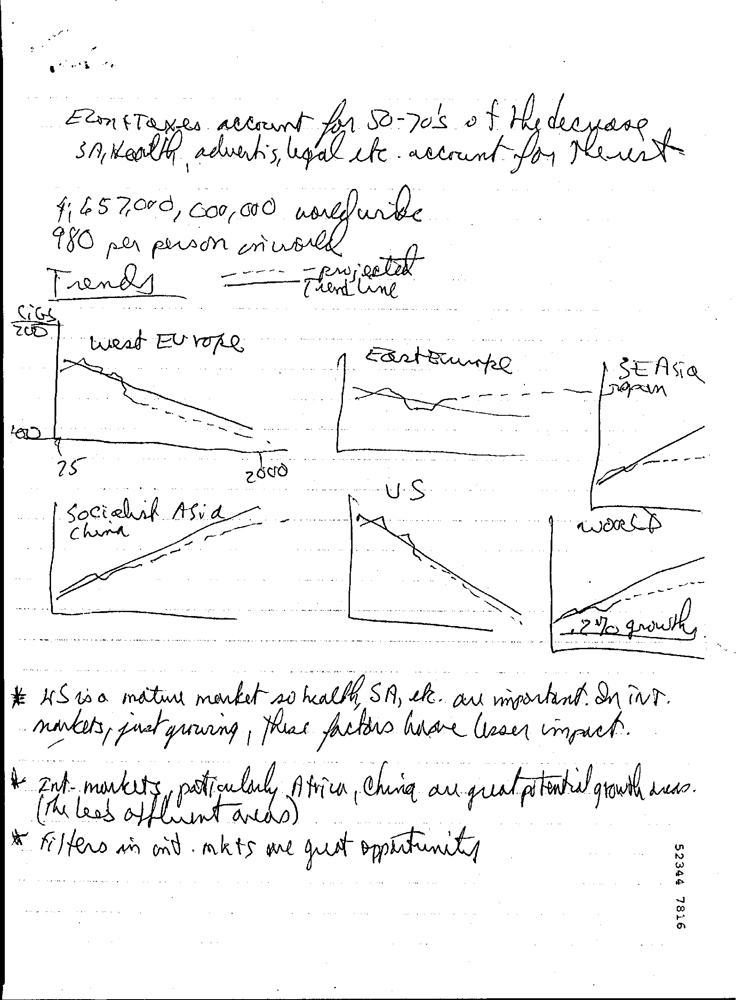 Econ & Taxes account for 50-70% of the decrease
SA, Health, advertis, legal etc. account for the rest
4,657,000,000,000 worldwide
980 per person in world
Trends
- projected
Trend line
CIGS
200
West Europe
75
2000
East Europe
SE Asia
Japan
Socialist Asia
China
U.S
WORLD
.2% growth
* US is a mature market so health, SA, etc. are important. In INT.
markets, just growing, these factors have lesser impact.
* Int. markets, particularly Africa, China are great potential growth areas.
(the less affluent areas)
* Filters in int. mkts are great opportunity
52344 7816